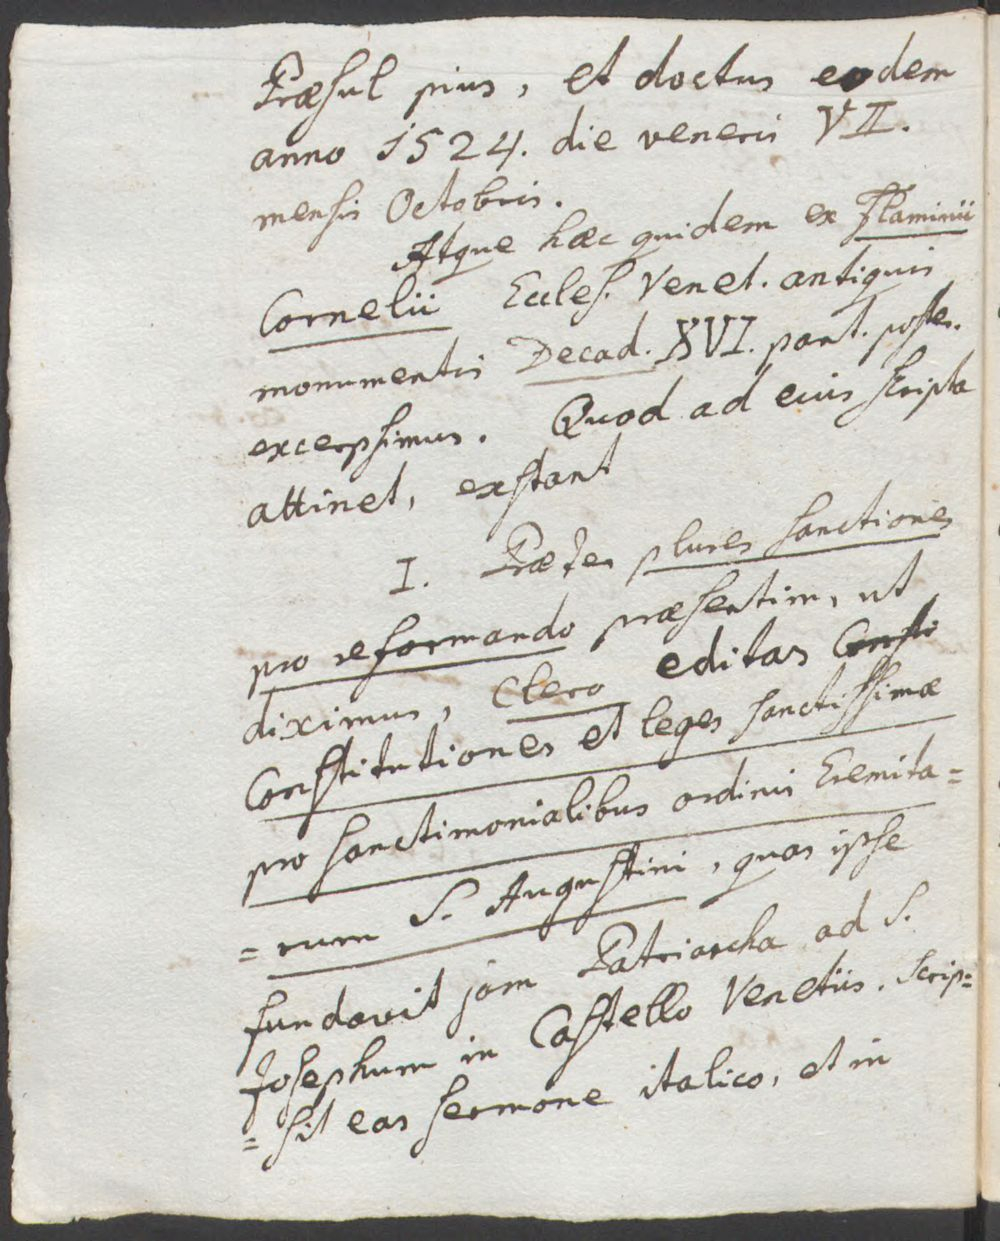 Præsul pius, et doctus eodem
anno 1524. die veneris VII.
mensis Octobris.
Atque hæc quidem ex Flaminii
Cornelii Eccles. Venet. antiquis
monumentis Decad. XVI. part. poster.
excerpsimus. Quod ad eius scripta
attinet, exstant
I. Præter plures sanctiones
pro reformando præsertim, ut
diximus, Clero editas Consti
Constitutiones et leges sanctissimæ
pro sanctimonialibus ordinis Eremita=
=rum S. Augustini, quas ipse
fundavit jam Patriarcha ad S.
Josephum in Castello Venetiis. Scrip=
=sit eas sermone italico, et in